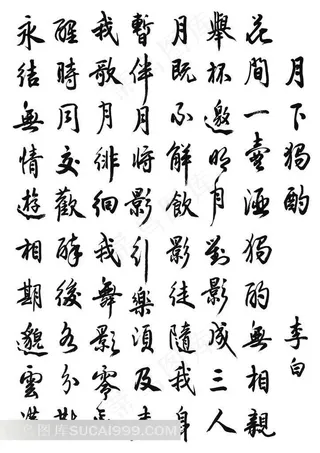 月下獨酌 李白
花間一壺酒獨酌無相親
舉杯邀明月對影成三人
月既不解飲影徒隨我身
暫伴月將影行樂須及春
我歌月徘徊我舞影零亂
醒時同交歡醉後各分散
永結無情遊相期邈雲漢
SUCAI999.COM